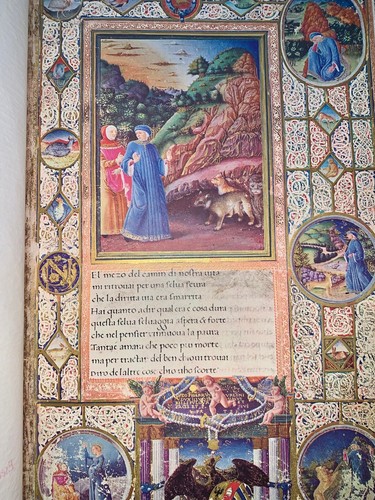 El mezo del camin di nostra uita
mi ritrouai per una selua scura
che la diritta uia era smarrita
Hai quanto adir qual era e cosa dura
questa selua seluaggia aspera & forte
che nel pensier rinnoua la paura
Tanto e amara che poco piu morte
ma per tractar del ben chio uitrouai
Diro de laltre cose chio uho scorte